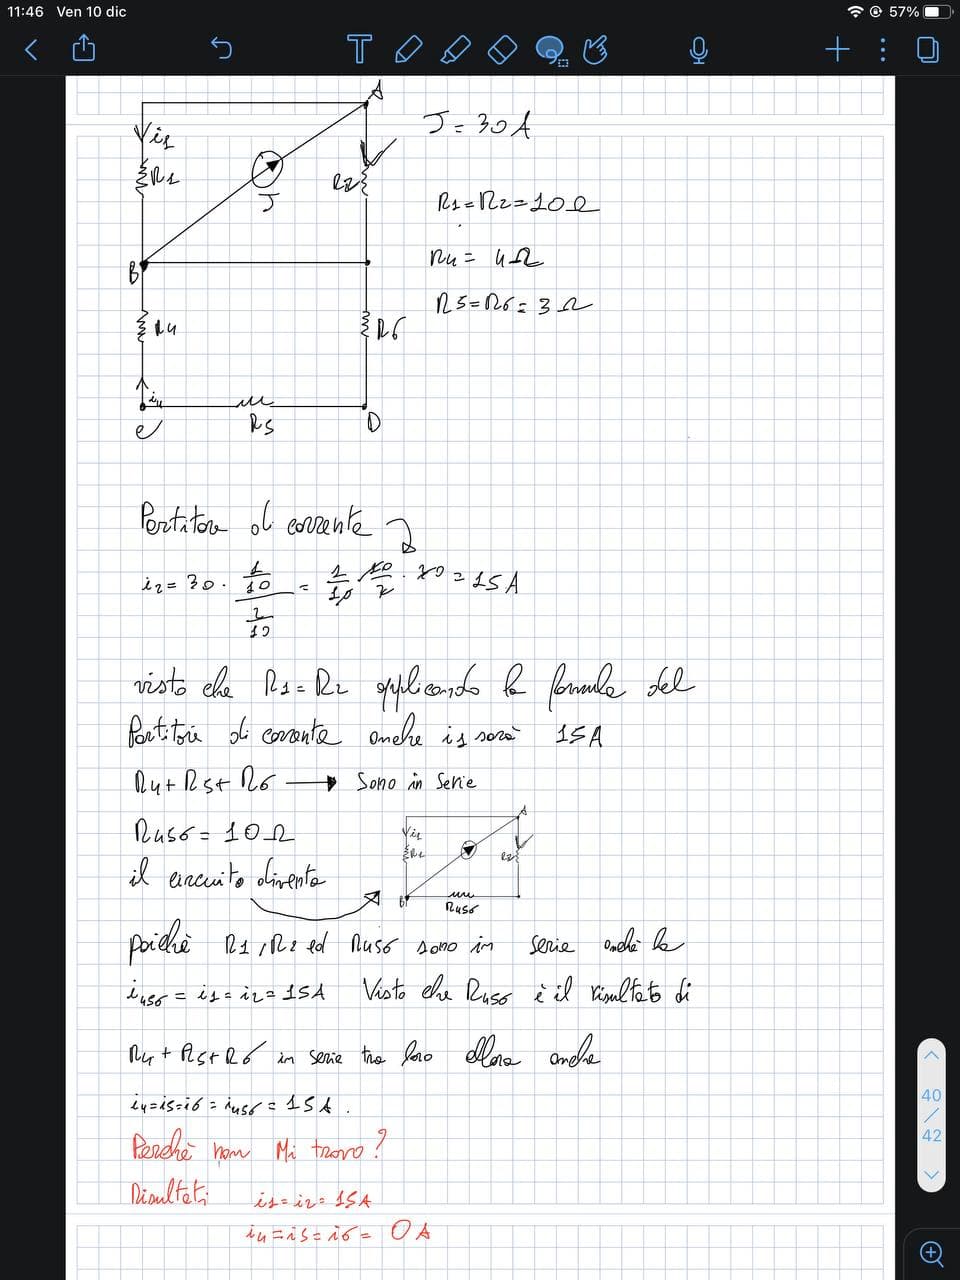 11:46 Ven 10 dic
57%
A
J = 30 A
i1
R1
R2
J
R1 = R2 = 10 Ω
B
R4 = 4 Ω
R5 = R6 = 3 Ω
R4
R6
i4
C
R5
D
Partitore di corrente
i2 = 30 · 1/10 / 2/10 = 1/10 · 10/2 · 30 = 15 A
visto che R1 = R2 applicando la formula del
Partitore di corrente anche i1 sarà 15 A
R4 + R5 + R6 → Sono in Serie
R456 = 10 Ω
il circuito diventa
A
i1
R1
R2
B
R456
poichè R1, R2 ed R456 sono in serie anche la
i456 = i1 = i2 = 15A Visto che R456 è il risultato di
R4 + R5 + R6 in serie tra loro allora anche
i4 = i5 = i6 = i456 = 15 A.
Perchè non Mi trovo?
Risultati i1 = i2 = 15A
i4 = i5 = i6 = 0 A
40
/
42